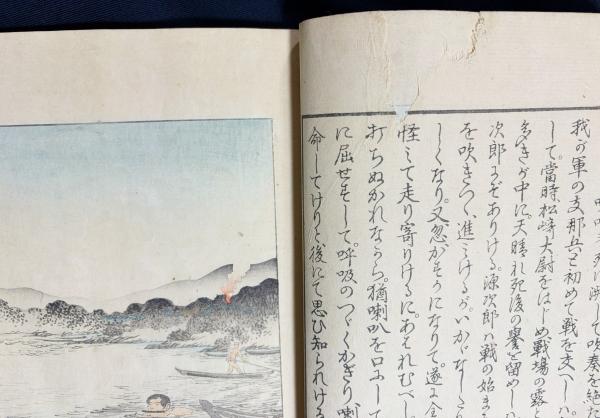 我が軍の支那兵と初めて戦を交へし
して。當時松崎大尉をはじめ戰場の露
多きが中に。天晴れ死後の譽を留めし
次郎にぞありける。源次郎ハ戰の始ま
を吹きつゝ進ミけるが。いかゞしたり
しくなり。又忽がすかになりて。遂に全
怪ミて走り寄りけるに。あはれむべし。
打ちぬかれながら。猶喇叭を口にして
に屈せずして。呼吸のつゞくかぎり、喇
命してけりと後にて思ひ知られける